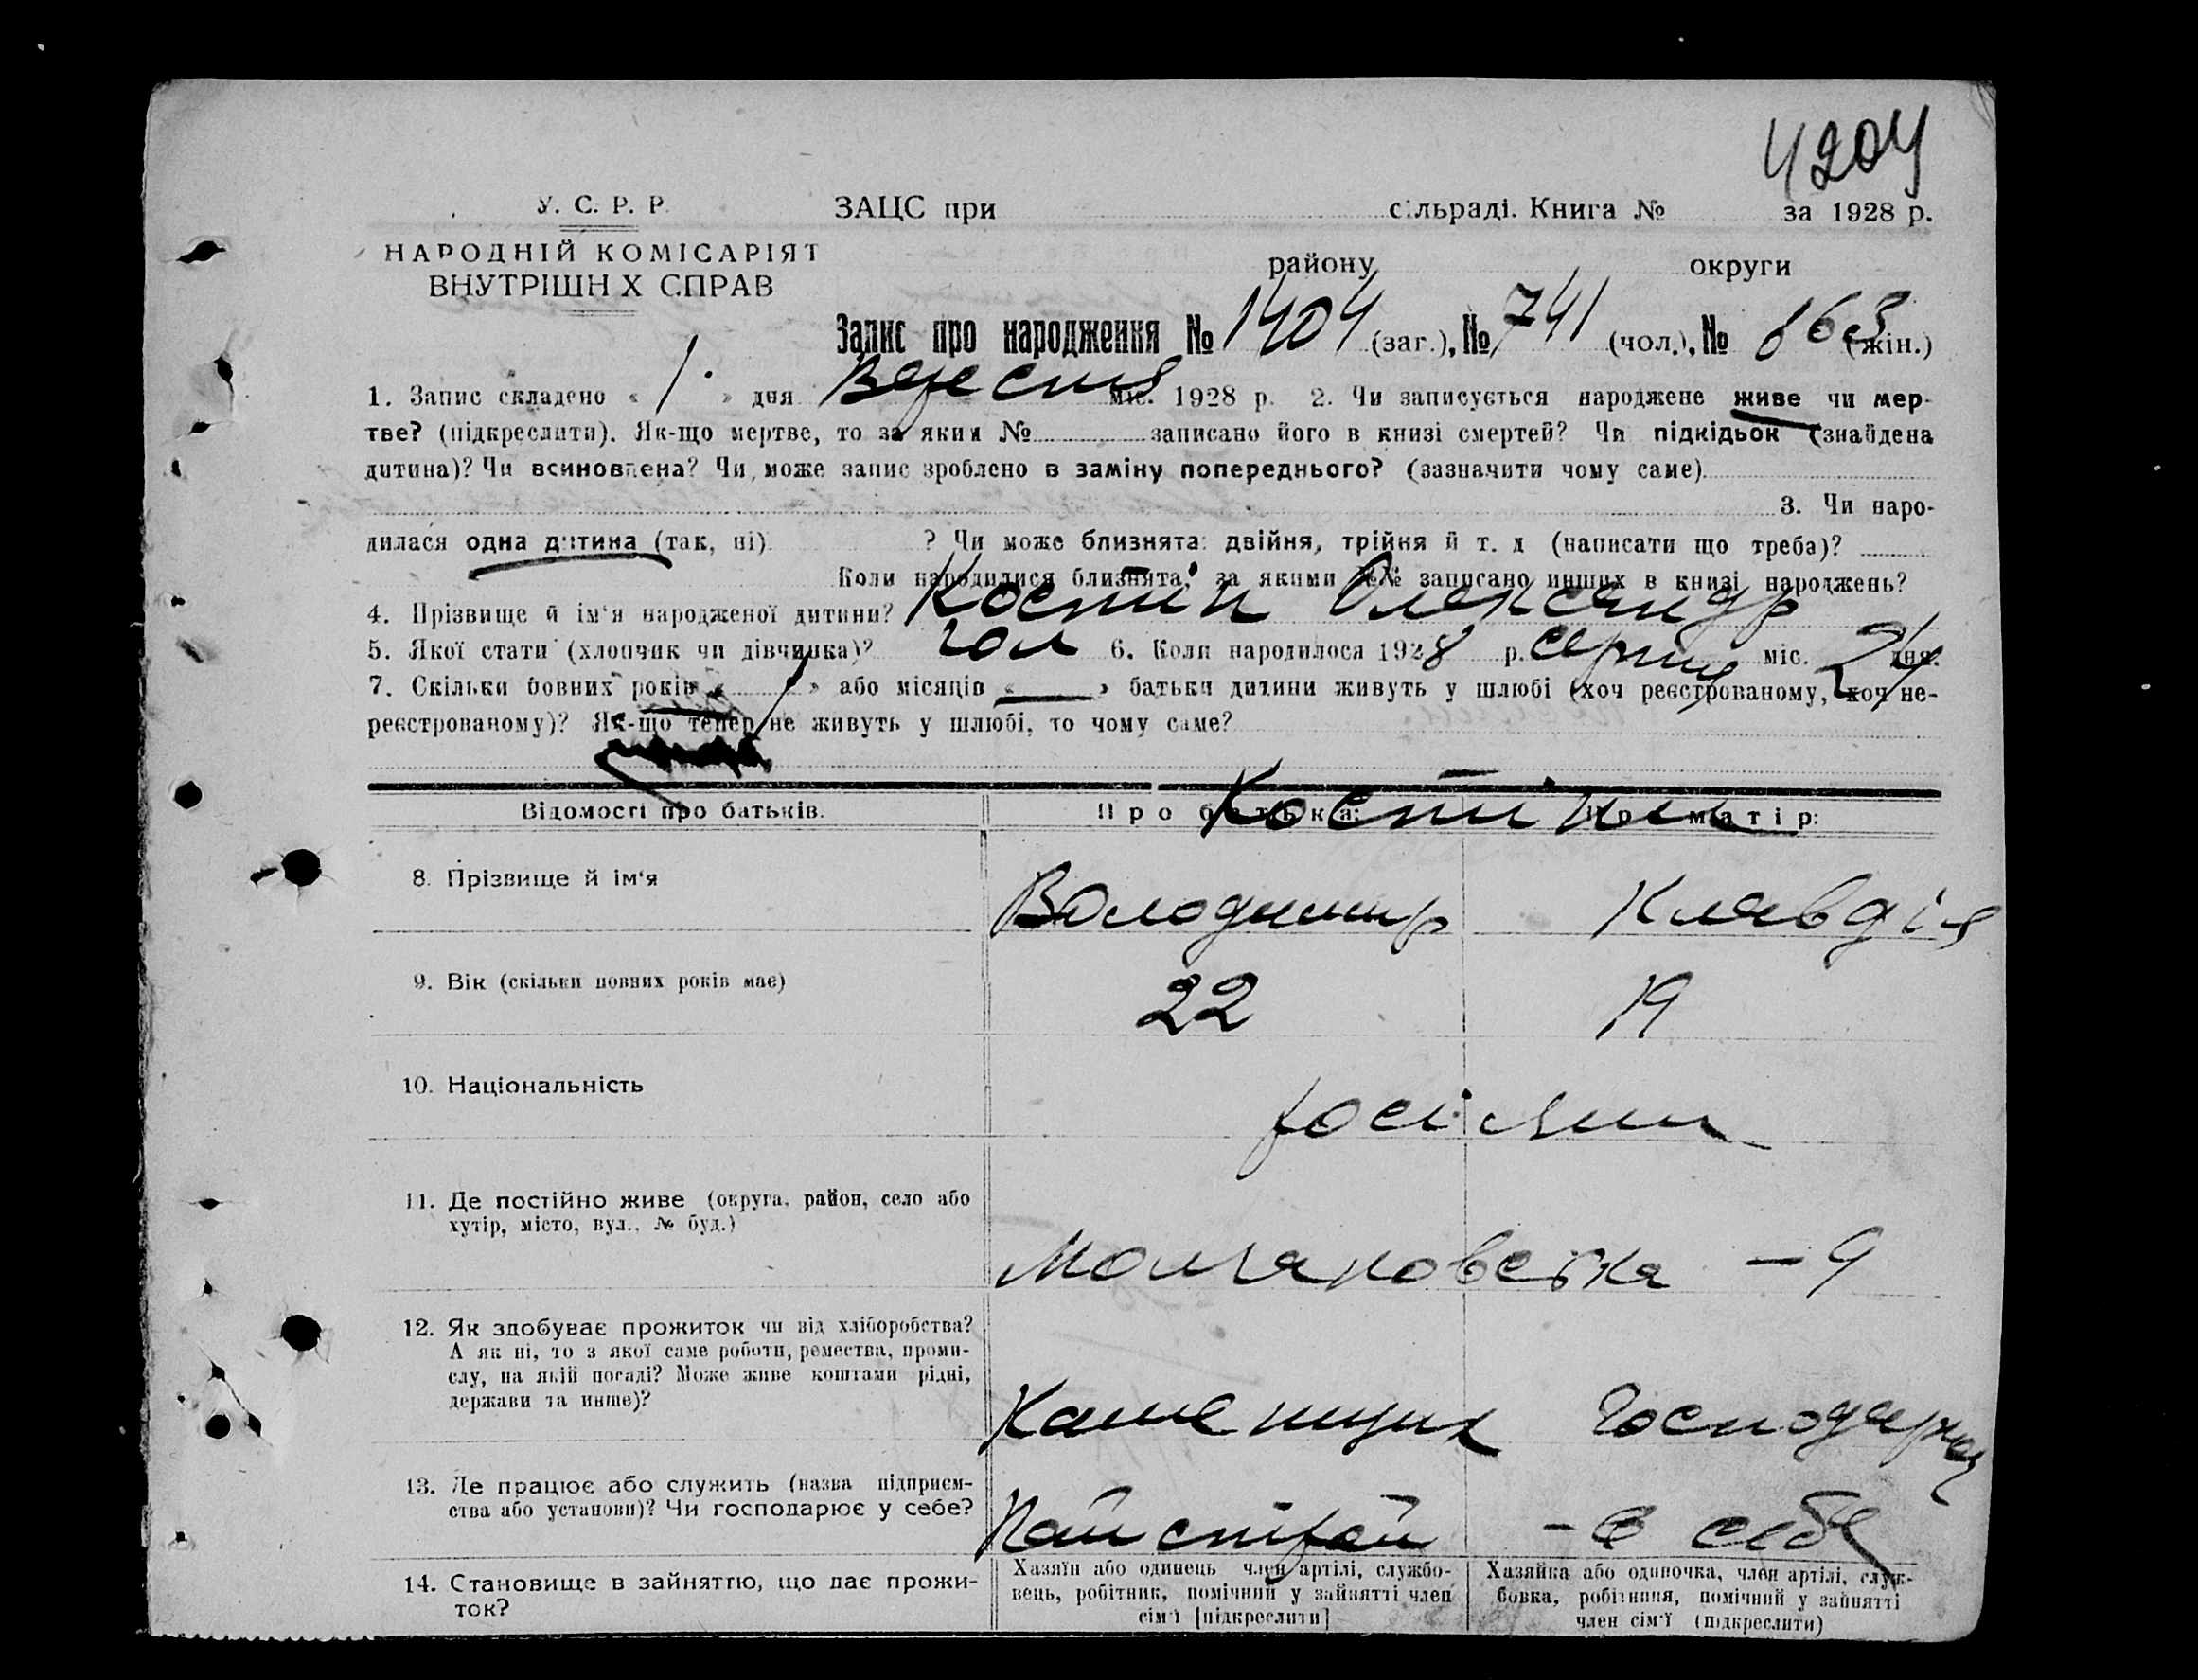 4204
У. С. Р. Р. ЗАЦС при сільраді. Книга № за 1928 р.
НАРОДНІЙ КОМІСАРІЯТ
ВНУТРІШН Х СПРАВ
району округи
Запис про народження № 1404 (заг.), № 741 (чол.), № 663 (жін.)
1. Запис складено « 1 » дня Вересня міс. 1928 р. 2. Чи записується народжене живе чи мер-
тве? (підкреслити). Як-що мертве, то за яким № записано його в книзі смертей? Чи підкідьок (знайдена
дитина)? Чи всиновлена? Чи може запис зроблено в заміну попереднього? (зазначити чому саме)
3. Чи наро-
дилася одна дитина (так, ні) ? Чи може близнята: двійня, трійня й т. д (написати що треба)?
Коли народилися близнята, за якими №№ записано инших в книзі народжень?
4. Прізвище й ім‘я народженої дитини? Костін Олександр
5. Якої стати (хлопчик чи дівчинка)? чол 6. Коли народилося 1928 р. серпня міс. 24 дня.
7. Скільки повних років « 1 » або місяців « — » батьки дитини живуть у шлюбі (хоч реєстрованому, хоч не-
реєстрованому)? Як-що тепер не живуть у шлюбі, то чому саме?
Відомості про батьків. Про батька: Про матір:
Костіни
8. Прізвище й ім‘я Володимир Клавдія
9. Вік (скільки повних років має) 22 19
10. Національність росіяни
11. Де постійно живе (округа, район, село або
хутір, місто, вул., № буд.)
– 9
12. Як здобуває прожиток чи від хліборобства?
А як ні, то з якої саме роботи, ремества, проми-
слу, на якій посаді? Може живе коштами рідні,
держави та инше)?
Каменщик Господарка
13. Де працює або служить (назва підприєм-
ства або установи)? Чи господарює у себе?
Пайстрой – в себе
14. Становище в зайняттю, що дає прожи-
ток?
Хазяїн або одинець член артілі, службо-
вець, робітник, помічний у зайнятті член
сім‘ї [підкреслити]
Хазяйка або одиночка, член артілі, служ-
бовка, робітниця, помічний у зайнятті
член сім‘ї (підкреслити)